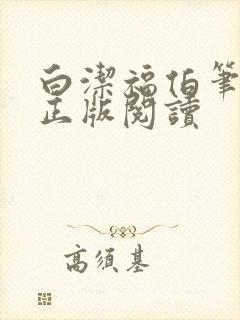 白潔福伯筆
正版閱讀
高須基